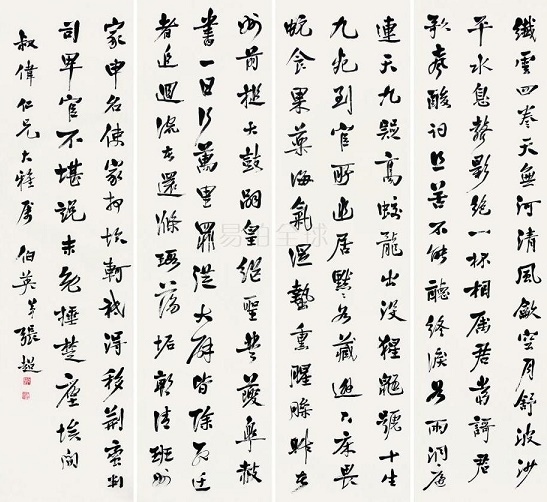 纖雲四卷天無河清風歙空月舒波沙
平水息聲影絕一杯相屬君當謌君
歌聲酸詞且苦不能聽終淚如雨洞庭
連天九疑高蛟龍出沒猩鼯號十生
九死到官所幽居默默如藏逃下床畏
蛇食畏藥海氣濕蟄熏腥臊昨者
州前搥大鼓嗣皇繼聖登夔皋赦
書一日行萬里罪從大辟皆除死遷
者追迴流者還滌瑕蕩垢朝清班州
家申名使家抑坎軻祗得移荊蠻判
司卑官不堪說未免捶楚塵埃間
叔偉仁兄大雅屬 伯英弟張超
易拍全球